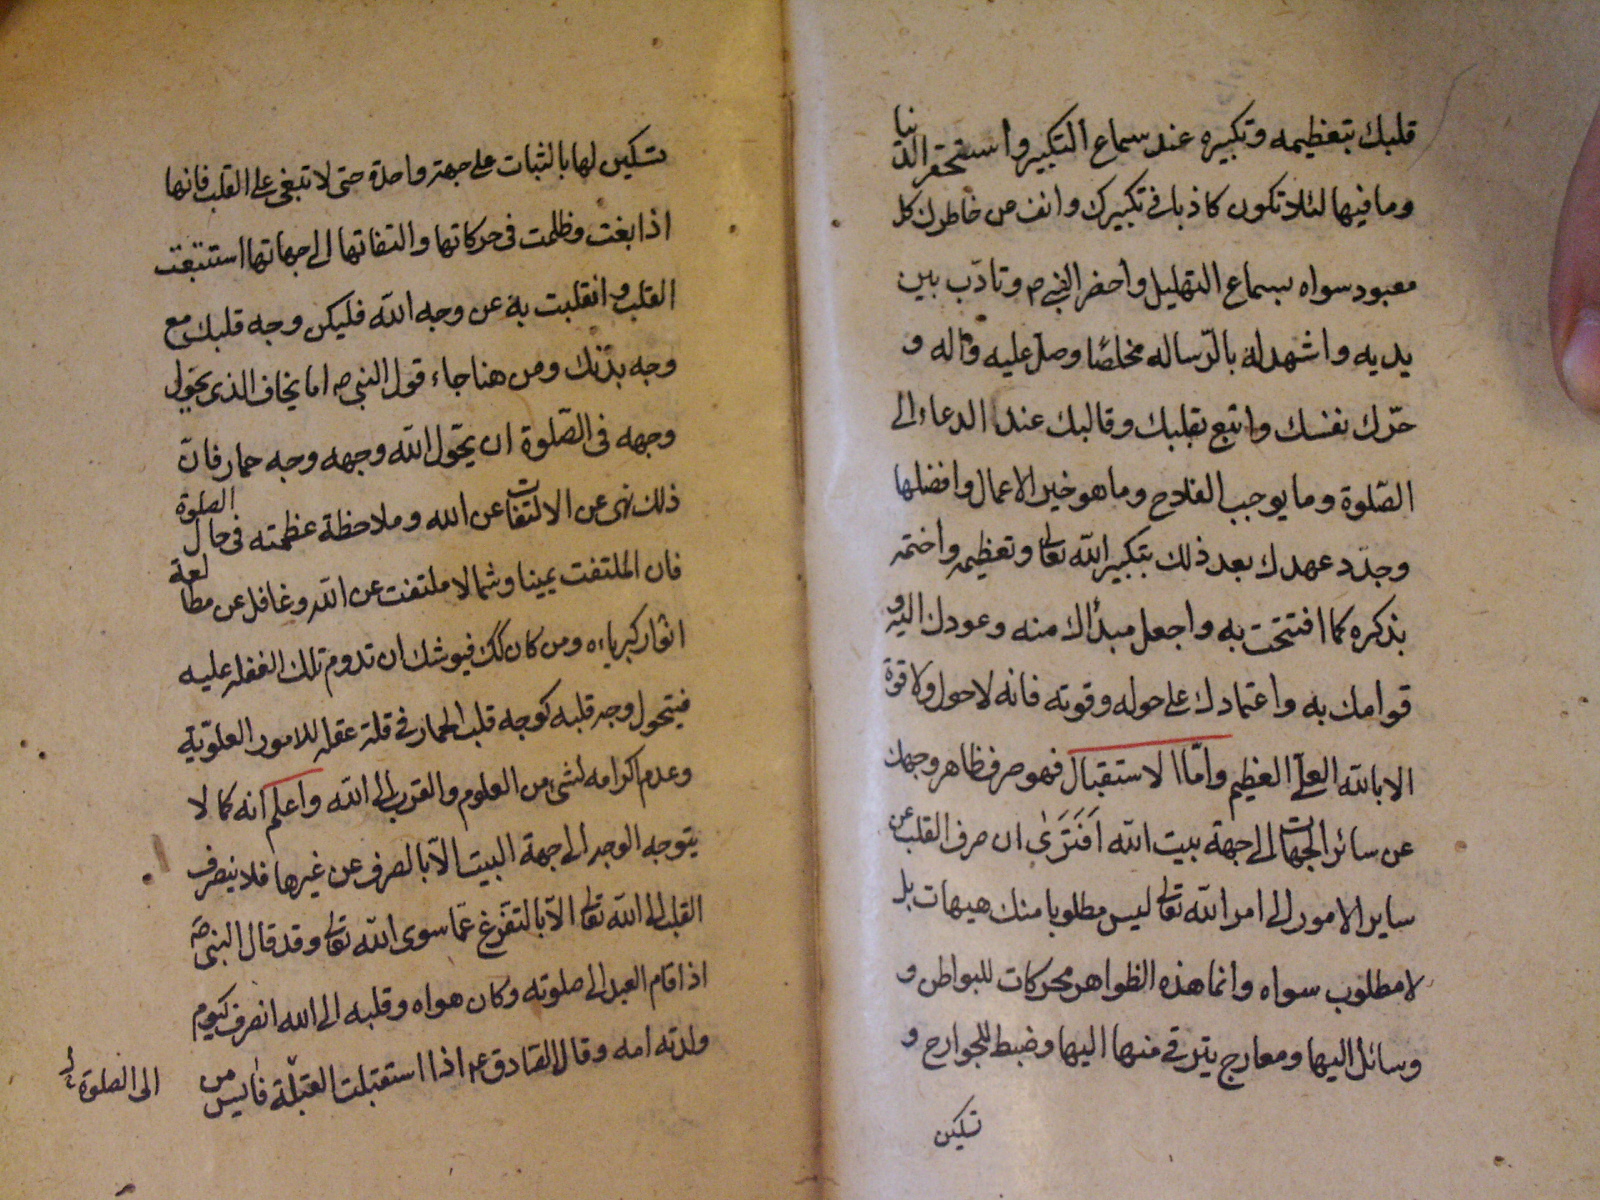 قلبك بتعظيمه وتكبيره عند سماع التكبير واستحقر الدنيا
وما فيها لئلا تكون كاذبا في تكبيرك وانف عن خاطرك كل
معبود سواه بسماع التهليل واحضر النبي ص وتادّب بين
يديه واشهد له بالرّساله مخلصًا وصلّ عليه وآله و
حرّك نفسك واتبع بقلبك وقالبك عند الدعاء الى
الصّلوة وما يوجب الفلاح وما هو خير الاعمال وافضلها
وجدّد عهدك بعد ذلك بتكبير الله تعالى وتعظيمه واختمه
بذكره كما افتتحت به واجعل مبدأك منه وعودك اليه و
قوامك به واعتمادك على حوله وقوته فانه لا حول ولا قوة
الا بالله العلّي العظيم وامّا الاستقبال فهو صرف ظاهر وجهك
عن سائر الجهات الى جهة بيت الله اَفَتَرَىٰ ان صرف القلب عن
ساير الامور الى امر الله تعالى ليس مطلوبا منك هيهات بل
لا مطلوب سواه وانما هذه الظواهر محركات للبواطن و
وسائل اليها ومعارج يترقى منها اليها وضبط للجوارح و
تسكين
تسكين لها بالثبات على جهة واحدة حتى لا تبغى على القلب فانها
اذا بغت وظلمت في حركاتها والتفاتها الى جهاتها استتبعت
القلب وانقلبت به عن وجه الله فليكن وجه قلبك مع
وجه بدنك ومن هنا جاء قول النبى ص اما يخاف الذى يحّول
وجهه في الصّلوة ان يحّول الله وجهه وجه حمار فان
ذلك نهى عن الالتفات عن الله وملاحظة عظمته في حال الصلوة
فان الملتفت يمينا وشمالا ملتفت عن الله وغافل عن مطالعة
انوار كبرياءه ومن كان كك فيوشك ان تدوم تلك الغفلة عليه
فيتحول وجه قلبه كوجه قلب الحمار في قلة عقله للامور العلويّة
وعدم اكرامه لشئ من العلوم والقرب الى الله واعلم انه كما لا
يتوجه الوجه الى جهة البيت الّا بالصرف عن غيرها فلا ينصرف
القلب الى الله تعالى الّا بالتفرّغ عمّا سوى الله تعالى وقد قال النبى ص
اذا قام العبد الى صلوته وكان هواه وقلبه الى الله انصرف كيوم
ولدته امه وقال الصّادق ع اذا استقبلت القبلة فايس من
الى الصّلوة